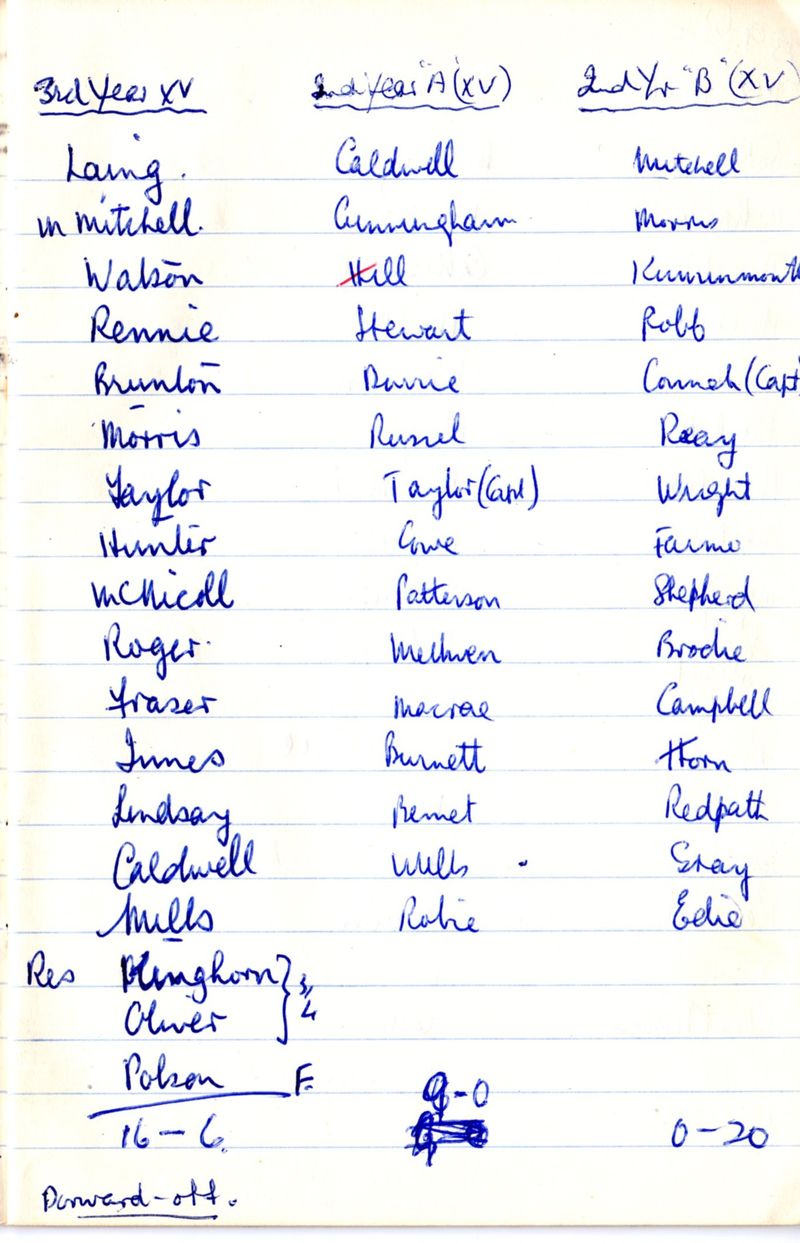 3rd Year XV 2nd Year "A" (XV) 2nd Yr "B" (XV)
Laing. Caldwell Mitchell
M Mitchell. Cunningham Morris
Watson Hill Kinninmonth
Rennie Stewart Robb
Brunton Durie (Capt)
Morris Russel Reay
Taylor Taylor (Capt) Wright
Hunter Cowe
McNicoll Patterson Shepherd
Roger. Brodie
Fraser Macrae Campbell
Innes Burnett Horn
Lindsay Redpath
Caldwell Mills Gray
Mills Robie Edie
Res
Oliver
Polson F.
9-0
16-6. 0-20
Dorward-off.